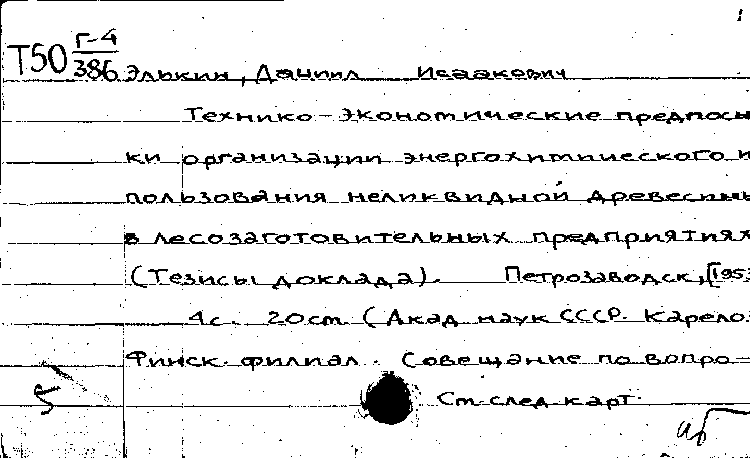 Т50 Г-4
386
Элькин, Даниил Исаакович
Технико-экономические предпосы
ки организации энергохимического и
пользования неликвидной древесины
в лесозаготовительных предприятиях
(Тезисы доклада). Петрозаводск, [195
4с. 20см. (Акад. наук СССР. Карело-
Финск. филиал. Совещание по вопро-
См. след. карт.